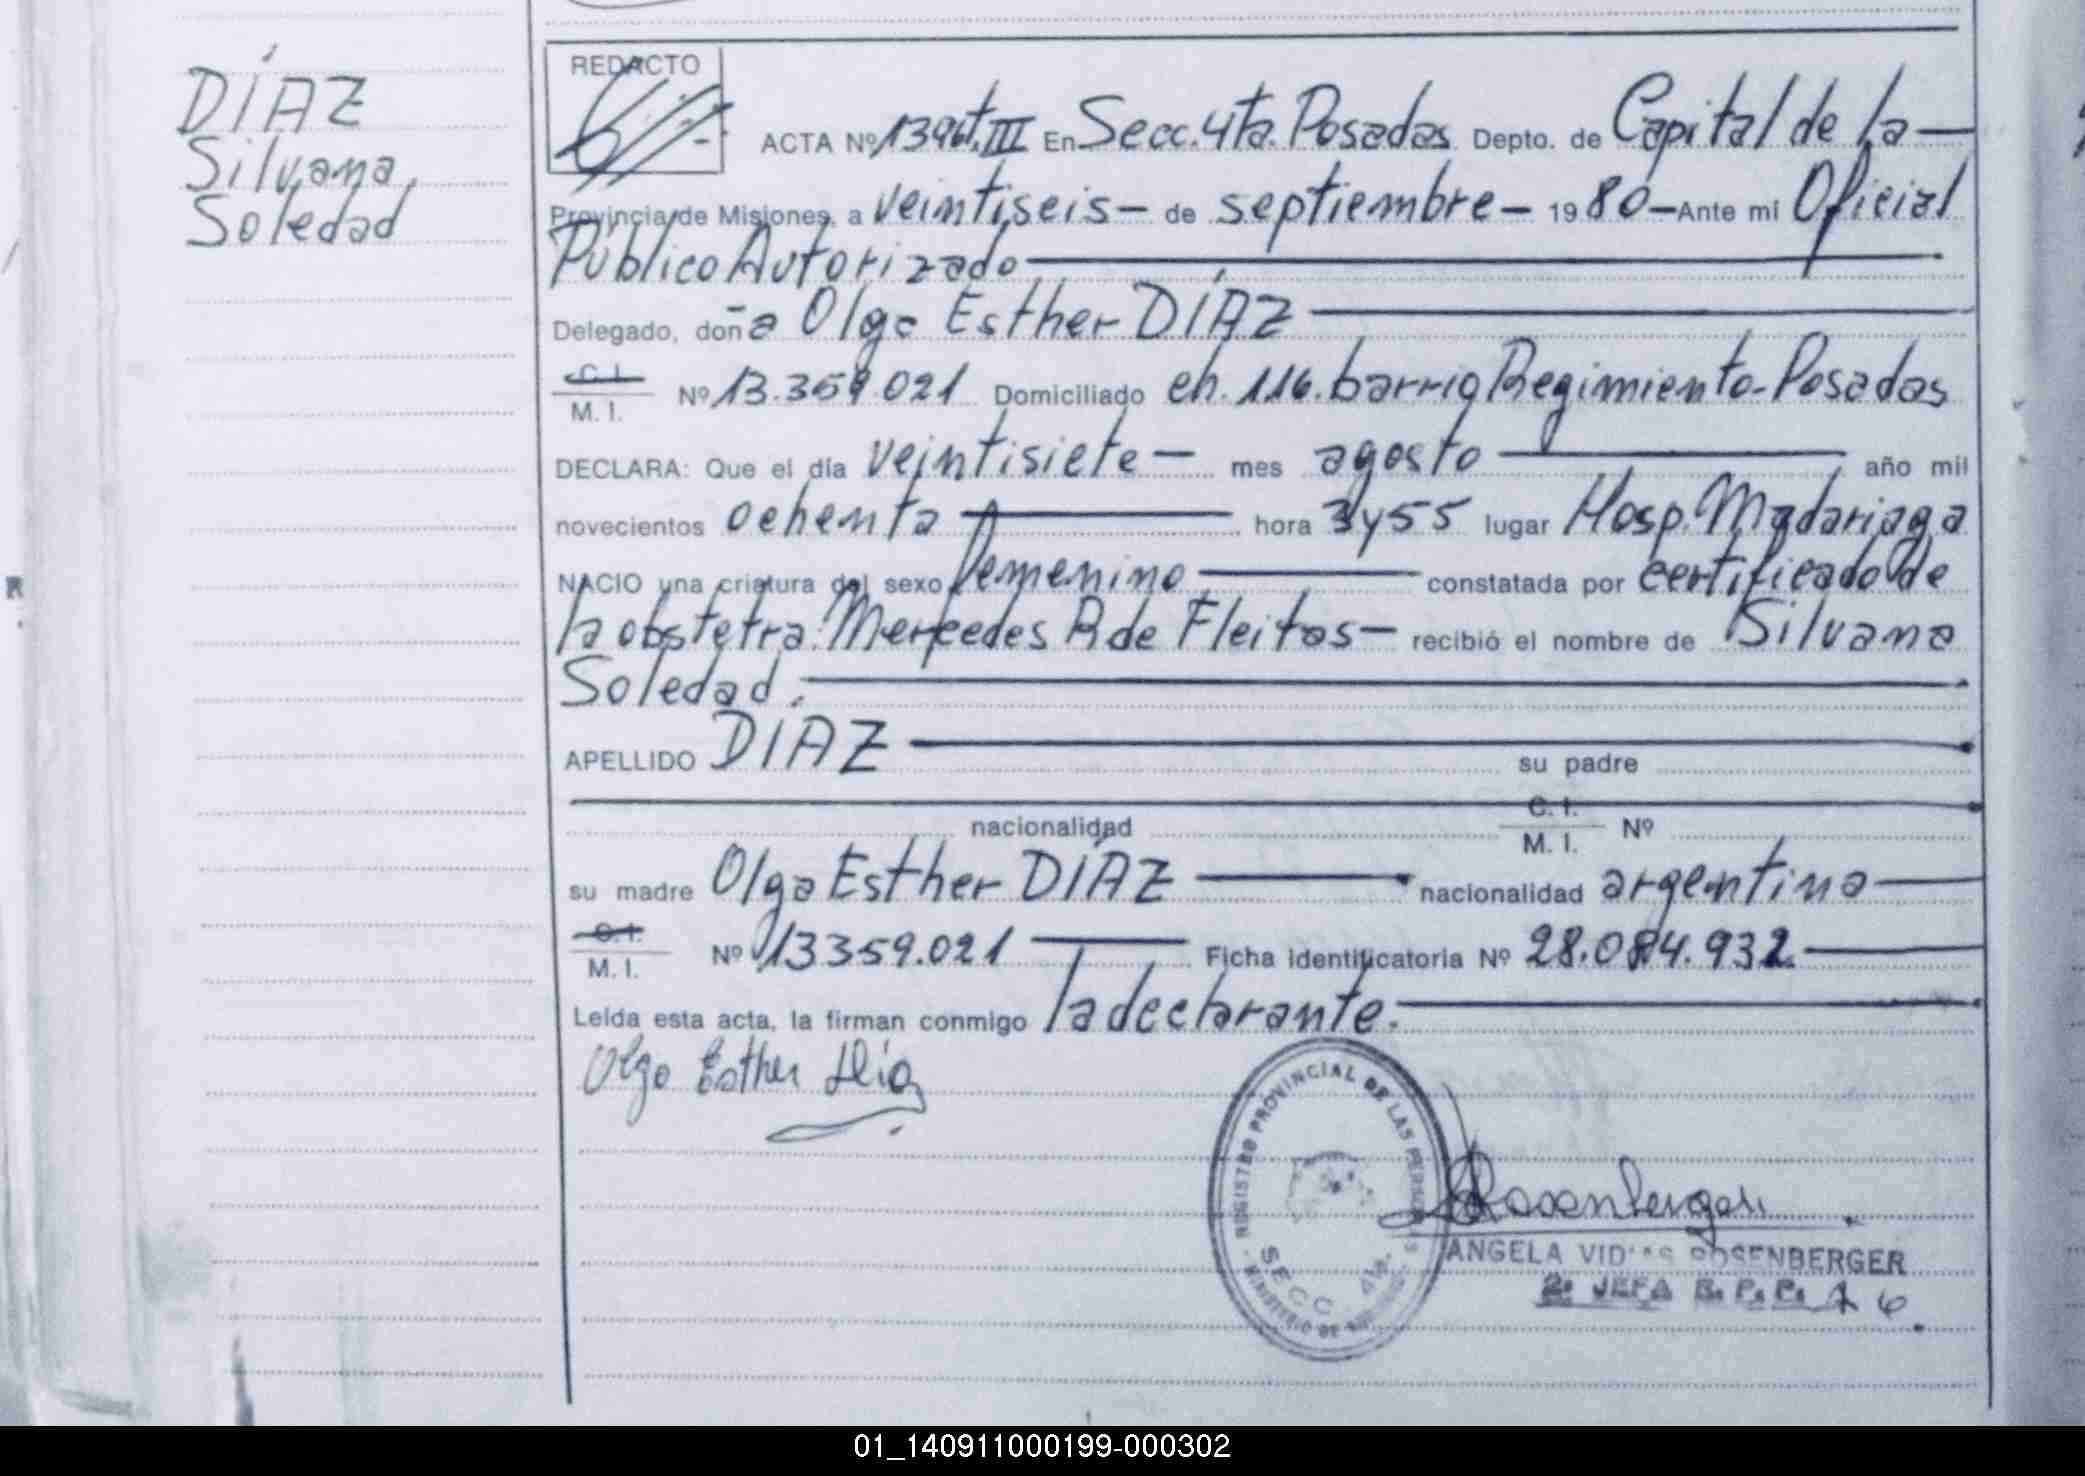 DÍAZ
Silvana
Soledad
REDACTO
ACTA Nº 1396 t. III En Secc. 4ta. Posadas Depto. de Capital de la —
Provincia de Misiones, a veintiseis — de septiembre — 1980 — Ante mi Oficial
Público Autorizado
Delegado, doña Olga Esther DÍAZ
C. I.
M. I. Nº 13.359.021 Domiciliado ch. 116. barrio Regimiento - Posadas
DECLARA: Que el día veintisiete — mes agosto año mil
novecientos ochenta hora 3 y 55 lugar Hosp. Madariaga
NACIO una criatura del sexo femenino constatada por certificado de
la obstetra: Mercedes R de Fleitas — recibió el nombre de Silvana
Soledad.
APELLIDO DIAZ su padre
nacionalidad C. I. M. I. Nº
su madre Olga Esther DÍAZ nacionalidad argentina
C. I.
M. I. Nº 13359.021 Ficha identificatoria Nº 28.084.932.
Leída esta acta, la firman conmigo la declarante.
Olga Esther Díaz
REGISTRO PROVINCIAL DE LAS PERSONAS
SECC. 4ta.
MINISTERIO DE
Rosenberger
ANGELA ROSENBERGER
2º JEFA R. P. P.
01_140911000199-000302